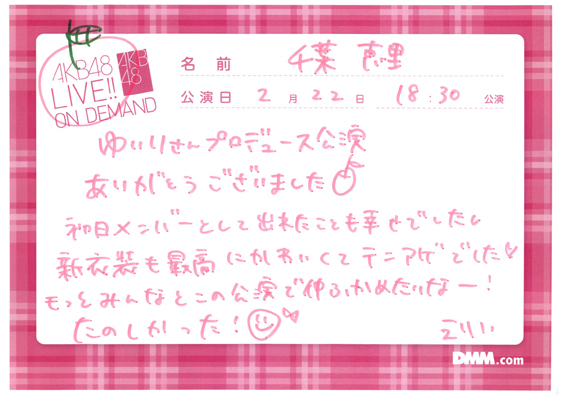 AKB48
LIVE!!
ON DEMAND
AKB
48
名前 千葉 恵里
公演日 2月22日 18:30 公演
ゆいりさんプロデュース公演
ありがとうございました
初日メンバーとして出れたことも幸せでした
新衣装も最高にかわいくてテンアゲでした
もっとみんなとこの公演で仲ふかめたいなー!
たのしかった!
えりい
DMM.com